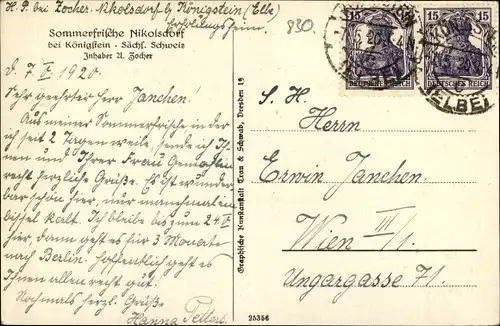 H. P. bei Zocher. Nikolsdorf b. Königstein (Elbe)
Erholungsheim
830.
Sommerfrische Nikolsdorf
bei Königstein - Sächs. Schweiz
Inhaber A. Zocher
d. 7. V. 1920.
Sehr geehrter Herr Janchen!
Aus meiner Sommerfrische in der
ich seit 2 Tagen weile, sende ich Ih-
nen und Ihrer Frau Gemahlin
recht herzliche Grüße. Es ist wunder-
bar schön hier, nur manchmal ein
bissel kalt. Ich bleibe bis zum 24. V.
hier, dann geht es für 3 Monate
nach Berlin. Hoffentlich geht es
Ihnen allen recht gut.
Nochmals herzl. Grüße
Hanna
Graphische Kunstanstalt Trau & Schwab, Dresden 19
25356
15 15
DEUTSCHES REICH
15 15
DEUTSCHES REICH
(ELBE)
S. H.
Herrn
Erwin Janchen.
Wien III/1.
Ungargasse 71.